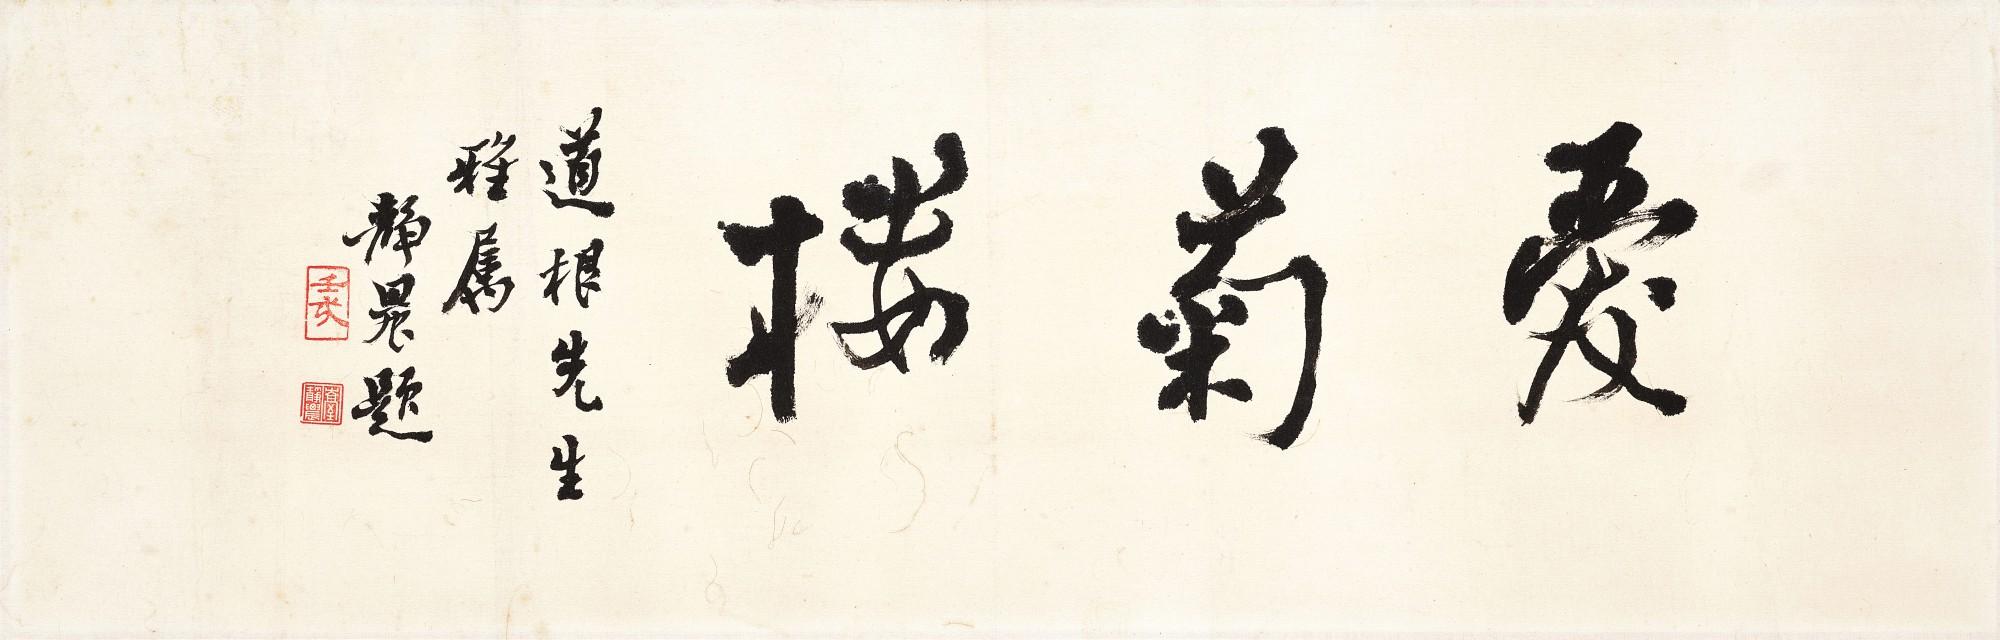 愛菊樓
道根先生
雅屬
靜農題
壬戌
臺靜農